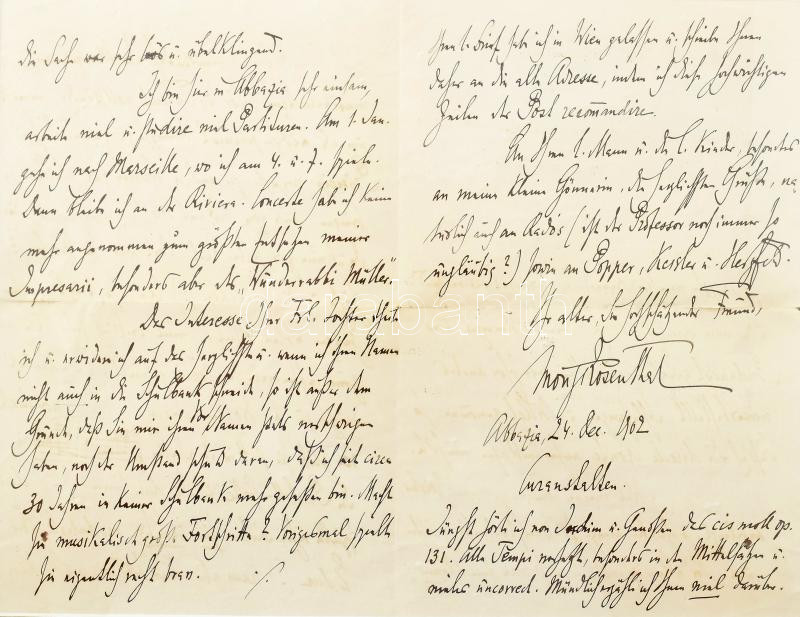 die Sache war sehr bös u. übelklingend.
Ich bin hier in Abbazia sehr einsam,
arbeite viel u. studire viel Partituren. Am 1. Jan.
gehe ich nach Marseille, wo ich am 4. u. 7. spiele.
Dann bleibe ich an der Riviera. Concerte habe ich keine
mehr angenommen zum größten Entsetzen meiner
Impresarii, besonders aber des „Wunderrabbi Müller".
Das Interesse Ihrer Frl. Tochter theile
ich u. erwidere ich auf das herzlichste u. wenn ich ihren Namen
nicht auch in die Schulbank schneide, so ist außer dem
Grunde, daß Sie mir ihren Vor Namen stets verschwiegen
haben, noch der Umstand schuld daran, daß ich seit circa
30 Jahren in keiner Schulbank mehr gesessen bin. Macht
sie musikalisch große Fortschritte? Voriges mal spielte
sie eigentlich recht brav.
Ihren l. Brief habe ich in Wien gelassen u. schreibe Ihnen
daher an die alte Adresse, indem ich diese hochwichtigen
Zeilen der Post recommandire.
An Ihren l. Mann u. die l. Kinder, besonders
an meine kleine Gönnerin, die herzlichsten Grüße, na
türlich auch an Radós (ist der Professor noch immer so
ungläubig?) sowie an Popper, Kessler u. Herzfeld.
Ihr alter, Sie hochschätzender Freund,
Moriz Rosenthal
Abbazia, 24. Dec. 1902
Curanstalten.
Jüngst hörte ich von Joachim u. Genossen das cis moll op.
131. Alle Tempi verhetzt, besonders in den Mittelsätzen u.
vieles uncorrect. Mündlich erzähle ich Ihnen viel darüber.
darabanth